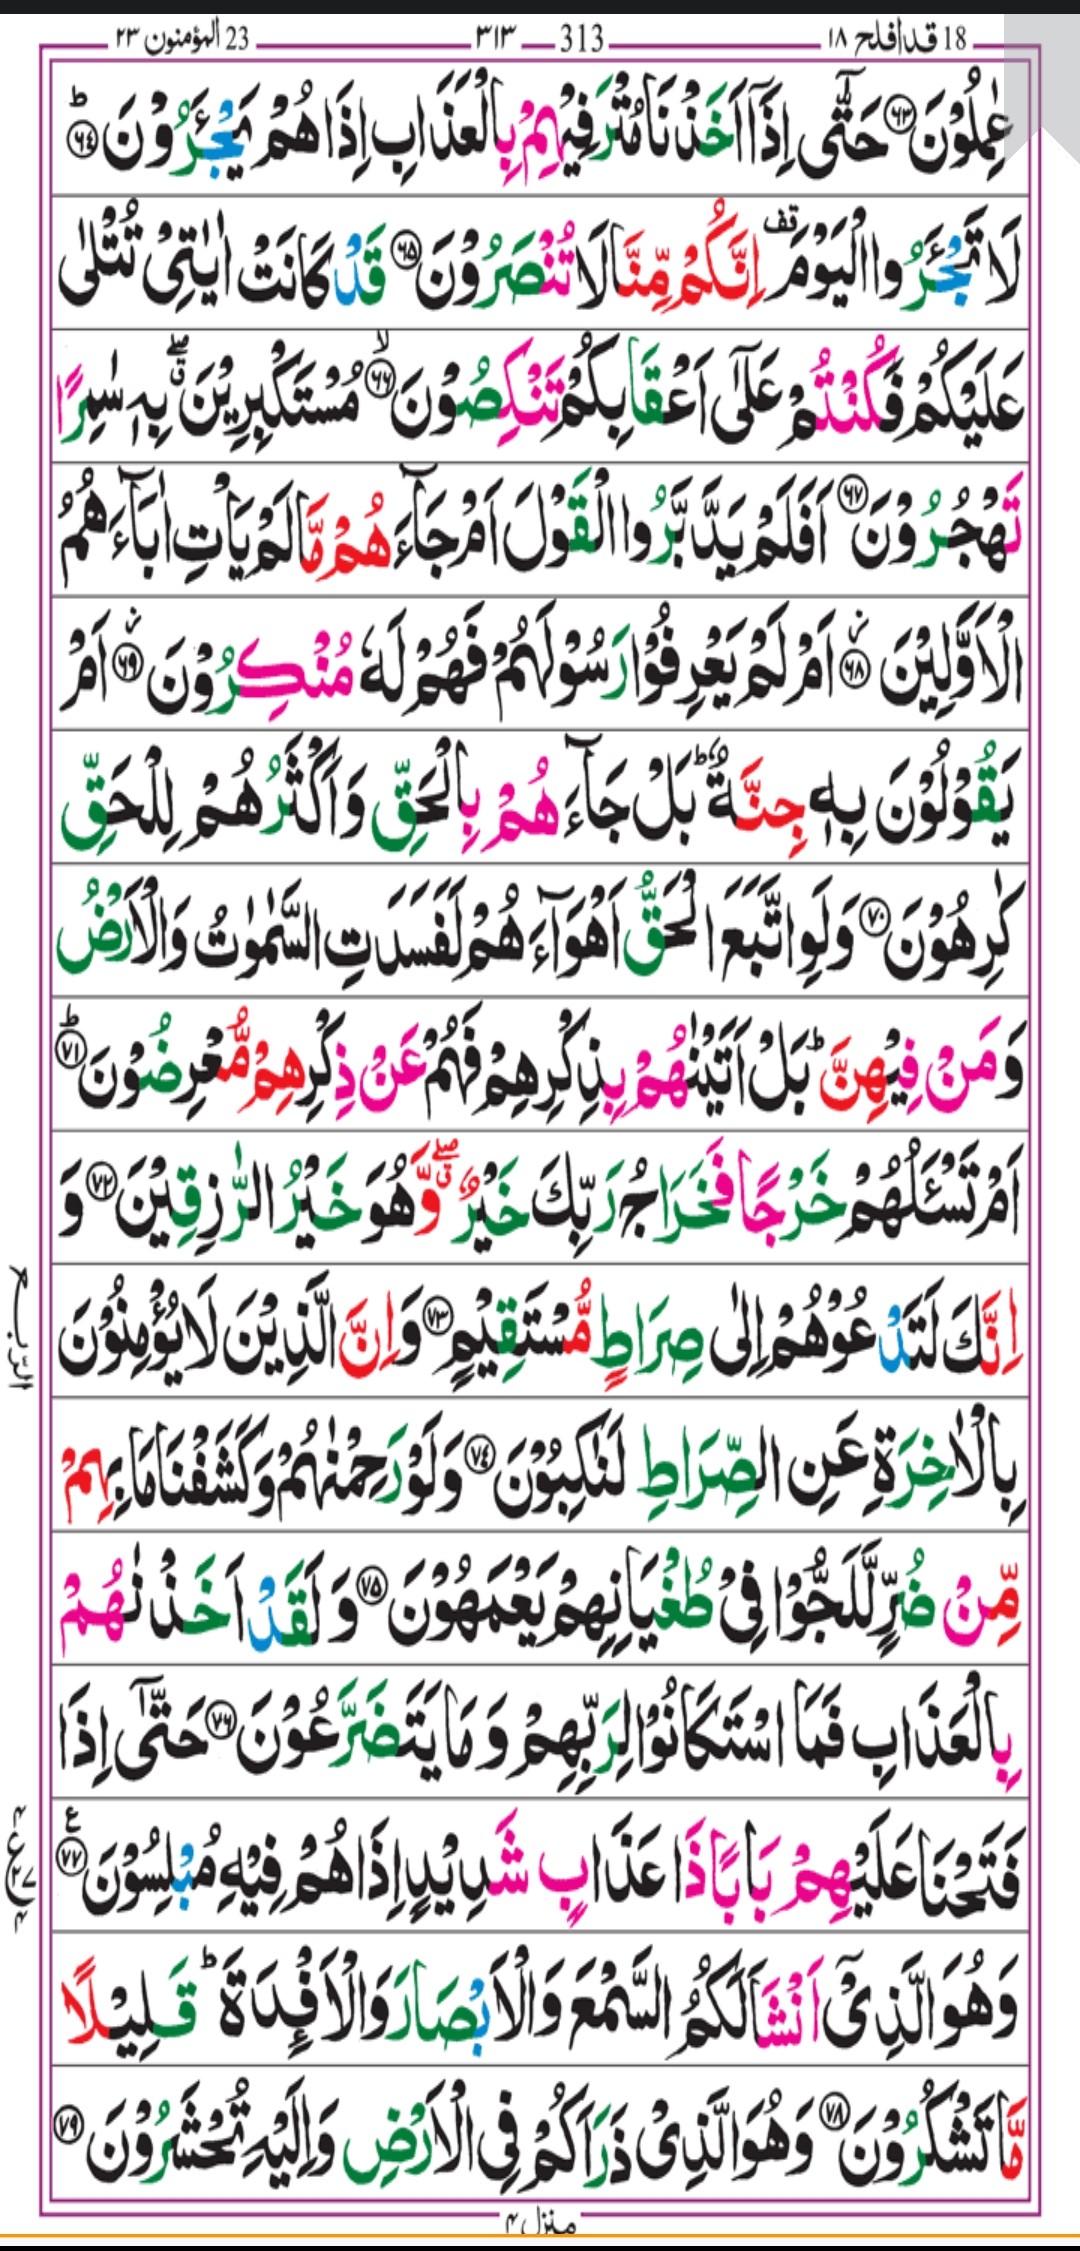 18 قد افلح ١٨
313 ٣١٣
23 المؤمنون ٢٣
عٰمِلُوْنَ ﴿۶۳﴾ حَتّٰۤى اِذَاۤ اَخَذْنَا مُتْرَفِيْهِمْ بِالْعَذَابِ اِذَا هُمْ يَجْـَٔرُوْنَ ؕ﴿۶۴﴾
لَا تَجْـَٔرُوا الْيَوْمَ ࣞقف اِنَّكُمْ مِّنَّا لَا تُنْصَرُوْنَ ﴿۶۵﴾ قَدْ كَانَتْ اٰيٰتِىْ تُتْلٰى
عَلَيْكُمْ فَكُنْتُمْ عَلٰٓى اَعْقَابِكُمْ تَنْكِصُوْنَ ۙ﴿۶۶﴾ مُسْتَكْبِرِيْنَ ۖق بِهٖ سٰمِرًا
تَهْجُرُوْنَ ﴿۶۷﴾ اَفَلَمْ يَدَّبَّرُوا الْقَوْلَ اَمْ جَآءَهُمْ مَّا لَمْ يَاْتِ اٰبَآءَهُمُ
الْاَوَّلِيْنَ ز﴿۶۸﴾ اَمْ لَمْ يَعْرِفُوْا رَسُوْلَهُمْ فَهُمْ لَهٗ مُنْكِرُوْنَ ز﴿۶۹﴾ اَمْ
يَقُوْلُوْنَ بِهٖ جِنَّةٌ ؕ بَلْ جَآءَهُمْ بِالْحَقِّ وَاَكْثَرُهُمْ لِلْحَقِّ
كٰرِهُوْنَ ﴿۷۰﴾ وَلَوِ اتَّبَعَ الْحَقُّ اَهْوَآءَهُمْ لَفَسَدَتِ السَّمٰوٰتُ وَالْاَرْضُ
وَمَنْ فِيْهِنَّ ؕ بَلْ اَتَيْنٰهُمْ بِذِكْرِهِمْ فَهُمْ عَنْ ذِكْرِهِمْ مُّعْرِضُوْنَ ؕ﴿۷۱﴾
اَمْ تَسْـَٔلُهُمْ خَرْجًا فَخَرَاجُ رَبِّكَ خَيْرٌ ۖق وَّهُوَ خَيْرُ الرّٰزِقِيْنَ ﴿۷۲﴾ وَ
اِنَّكَ لَتَدْعُوْهُمْ اِلٰى صِرَاطٍ مُّسْتَقِيْمٍ ﴿۷۳﴾ وَاِنَّ الَّذِيْنَ لَا يُؤْمِنُوْنَ
الرّبع
بِالْاٰخِرَةِ عَنِ الصِّرَاطِ لَنٰكِبُوْنَ ﴿۷۴﴾ وَلَوْ رَحِمْنٰهُمْ وَكَشَفْنَا مَا بِهِمْ
مِّنْ ضُرٍّ لَّلَجُّوْا فِىْ طُغْيَانِهِمْ يَعْمَهُوْنَ ﴿۷۵﴾ وَلَقَدْ اَخَذْنٰهُمْ
بِالْعَذَابِ فَمَا اسْتَكَانُوْا لِرَبِّهِمْ وَمَا يَتَضَرَّعُوْنَ ﴿۷۶﴾ حَتّٰۤى اِذَا
فَتَحْنَا عَلَيْهِمْ بَابًا ذَا عَذَابٍ شَدِيْدٍ اِذَا هُمْ فِيْهِ مُبْلِسُوْنَ ع﴿۷۷﴾
وَهُوَ الَّذِىْۤ اَنْشَاَ لَكُمُ السَّمْعَ وَالْاَبْصَارَ وَالْاَفْـِٕدَةَ ؕ قَلِيْلًا
مَّا تَشْكُرُوْنَ ﴿۷۸﴾ وَهُوَ الَّذِىْ ذَرَاَكُمْ فِى الْاَرْضِ وَاِلَيْهِ تُحْشَرُوْنَ ﴿۷۹﴾
منزل ۴